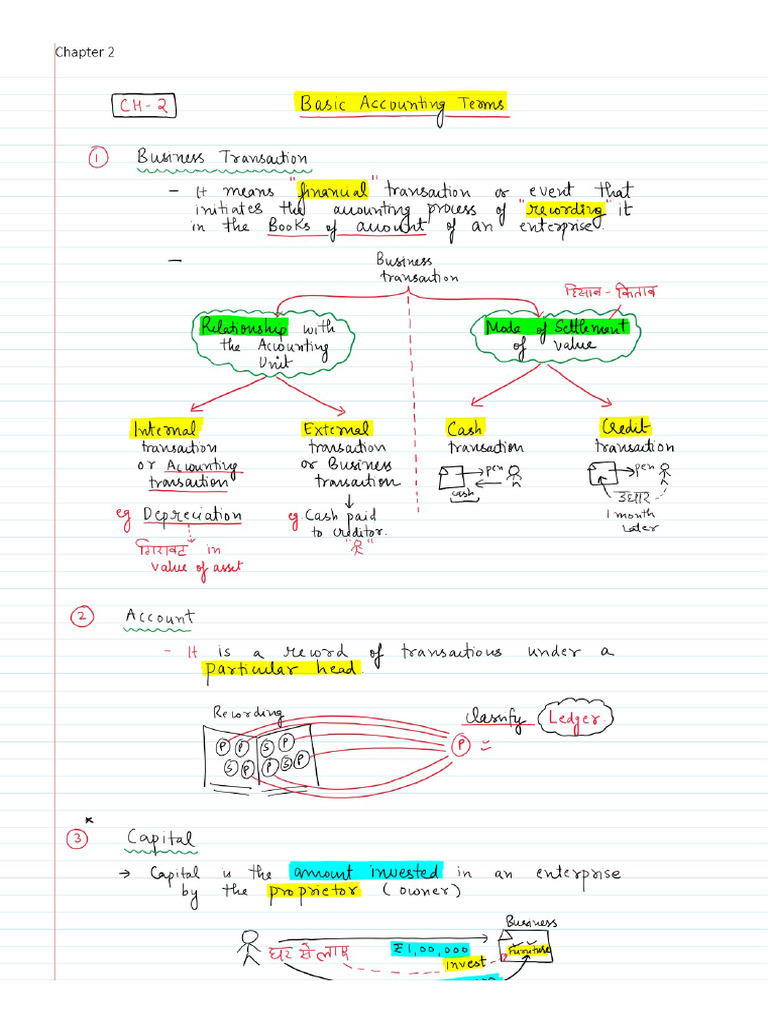 Chapter 2
CH-2
Basic Accounting Terms
① Business Transaction
- It means "financial" transaction or event that
initiates the accounting process of "recording" it
in the Books of account of an enterprise.
- Business
transaction
हिसाब - किताब
Relationship with
the Accounting
Unit
Mode of Settlement
of value
Internal
transaction
or Accounting
transaction
eg Depreciation
गिरावट in
value of asset
External
transaction
or Business
transaction
eg. Cash paid
to creditor.
Cash
transaction
pen
cash
Credit
transaction
pen
उधार
1 month
later
② Account
- It is a record of transactions under a
particular head.
Recording
P P S P
S P P S P
classify Ledger
P
③ Capital
→ Capital is the amount invested in an enterprise
by the proprietor (owner)
Business
घर से लाए ₹1,00,000
Furniture
invest